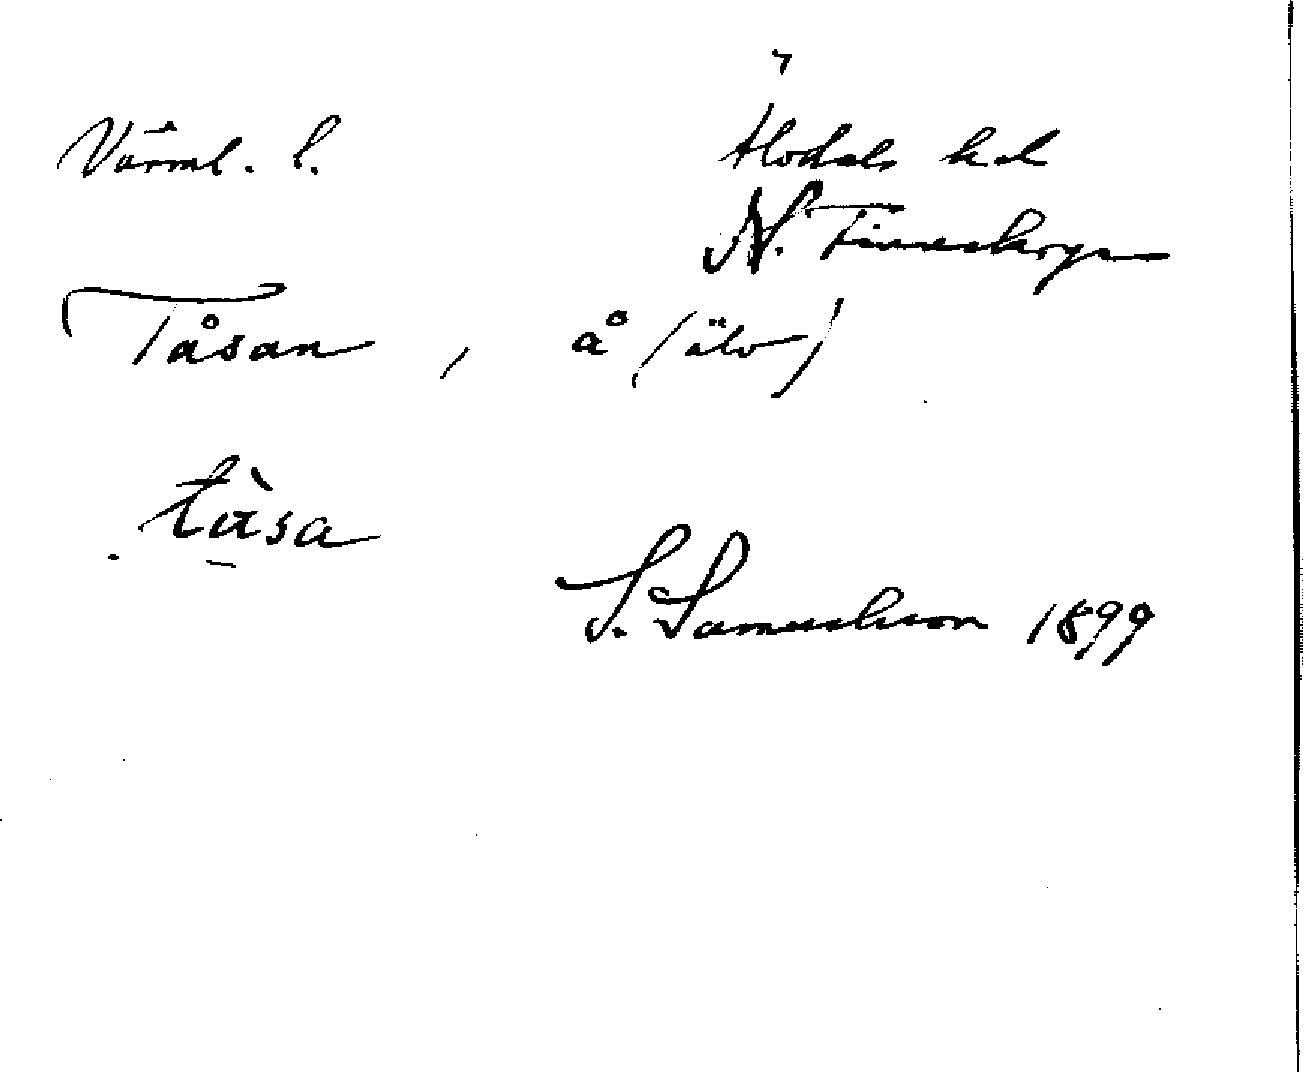 Värml. l. Älvdals hd
N. Finnskoga
Tåsan, å (älv)
tàsa
S. Samuelsson 1899